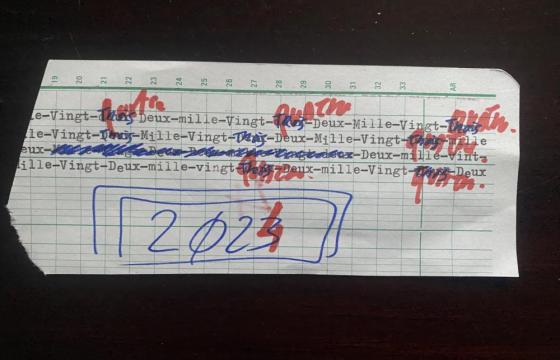 19 20 21 22 23 24 25 26 27 28 29 30 31 32 33 AR
quatre quatre quatre.
le-Vingt-Trois-Deux-mille-Vingt-Trois-Deux-Mille-Vingt-Trois
le-Vingt-Trois-Mille-Vingt-Trois-Deux-Mille-Vingt-Trois-mille
quatre.
eux- Deux-mille-Vint-
ille-Vingt-Trois-Deux-mille-vingt-Trois-Deux-mille-Vingt-Trois-Deux
quatre. quatre.
2024